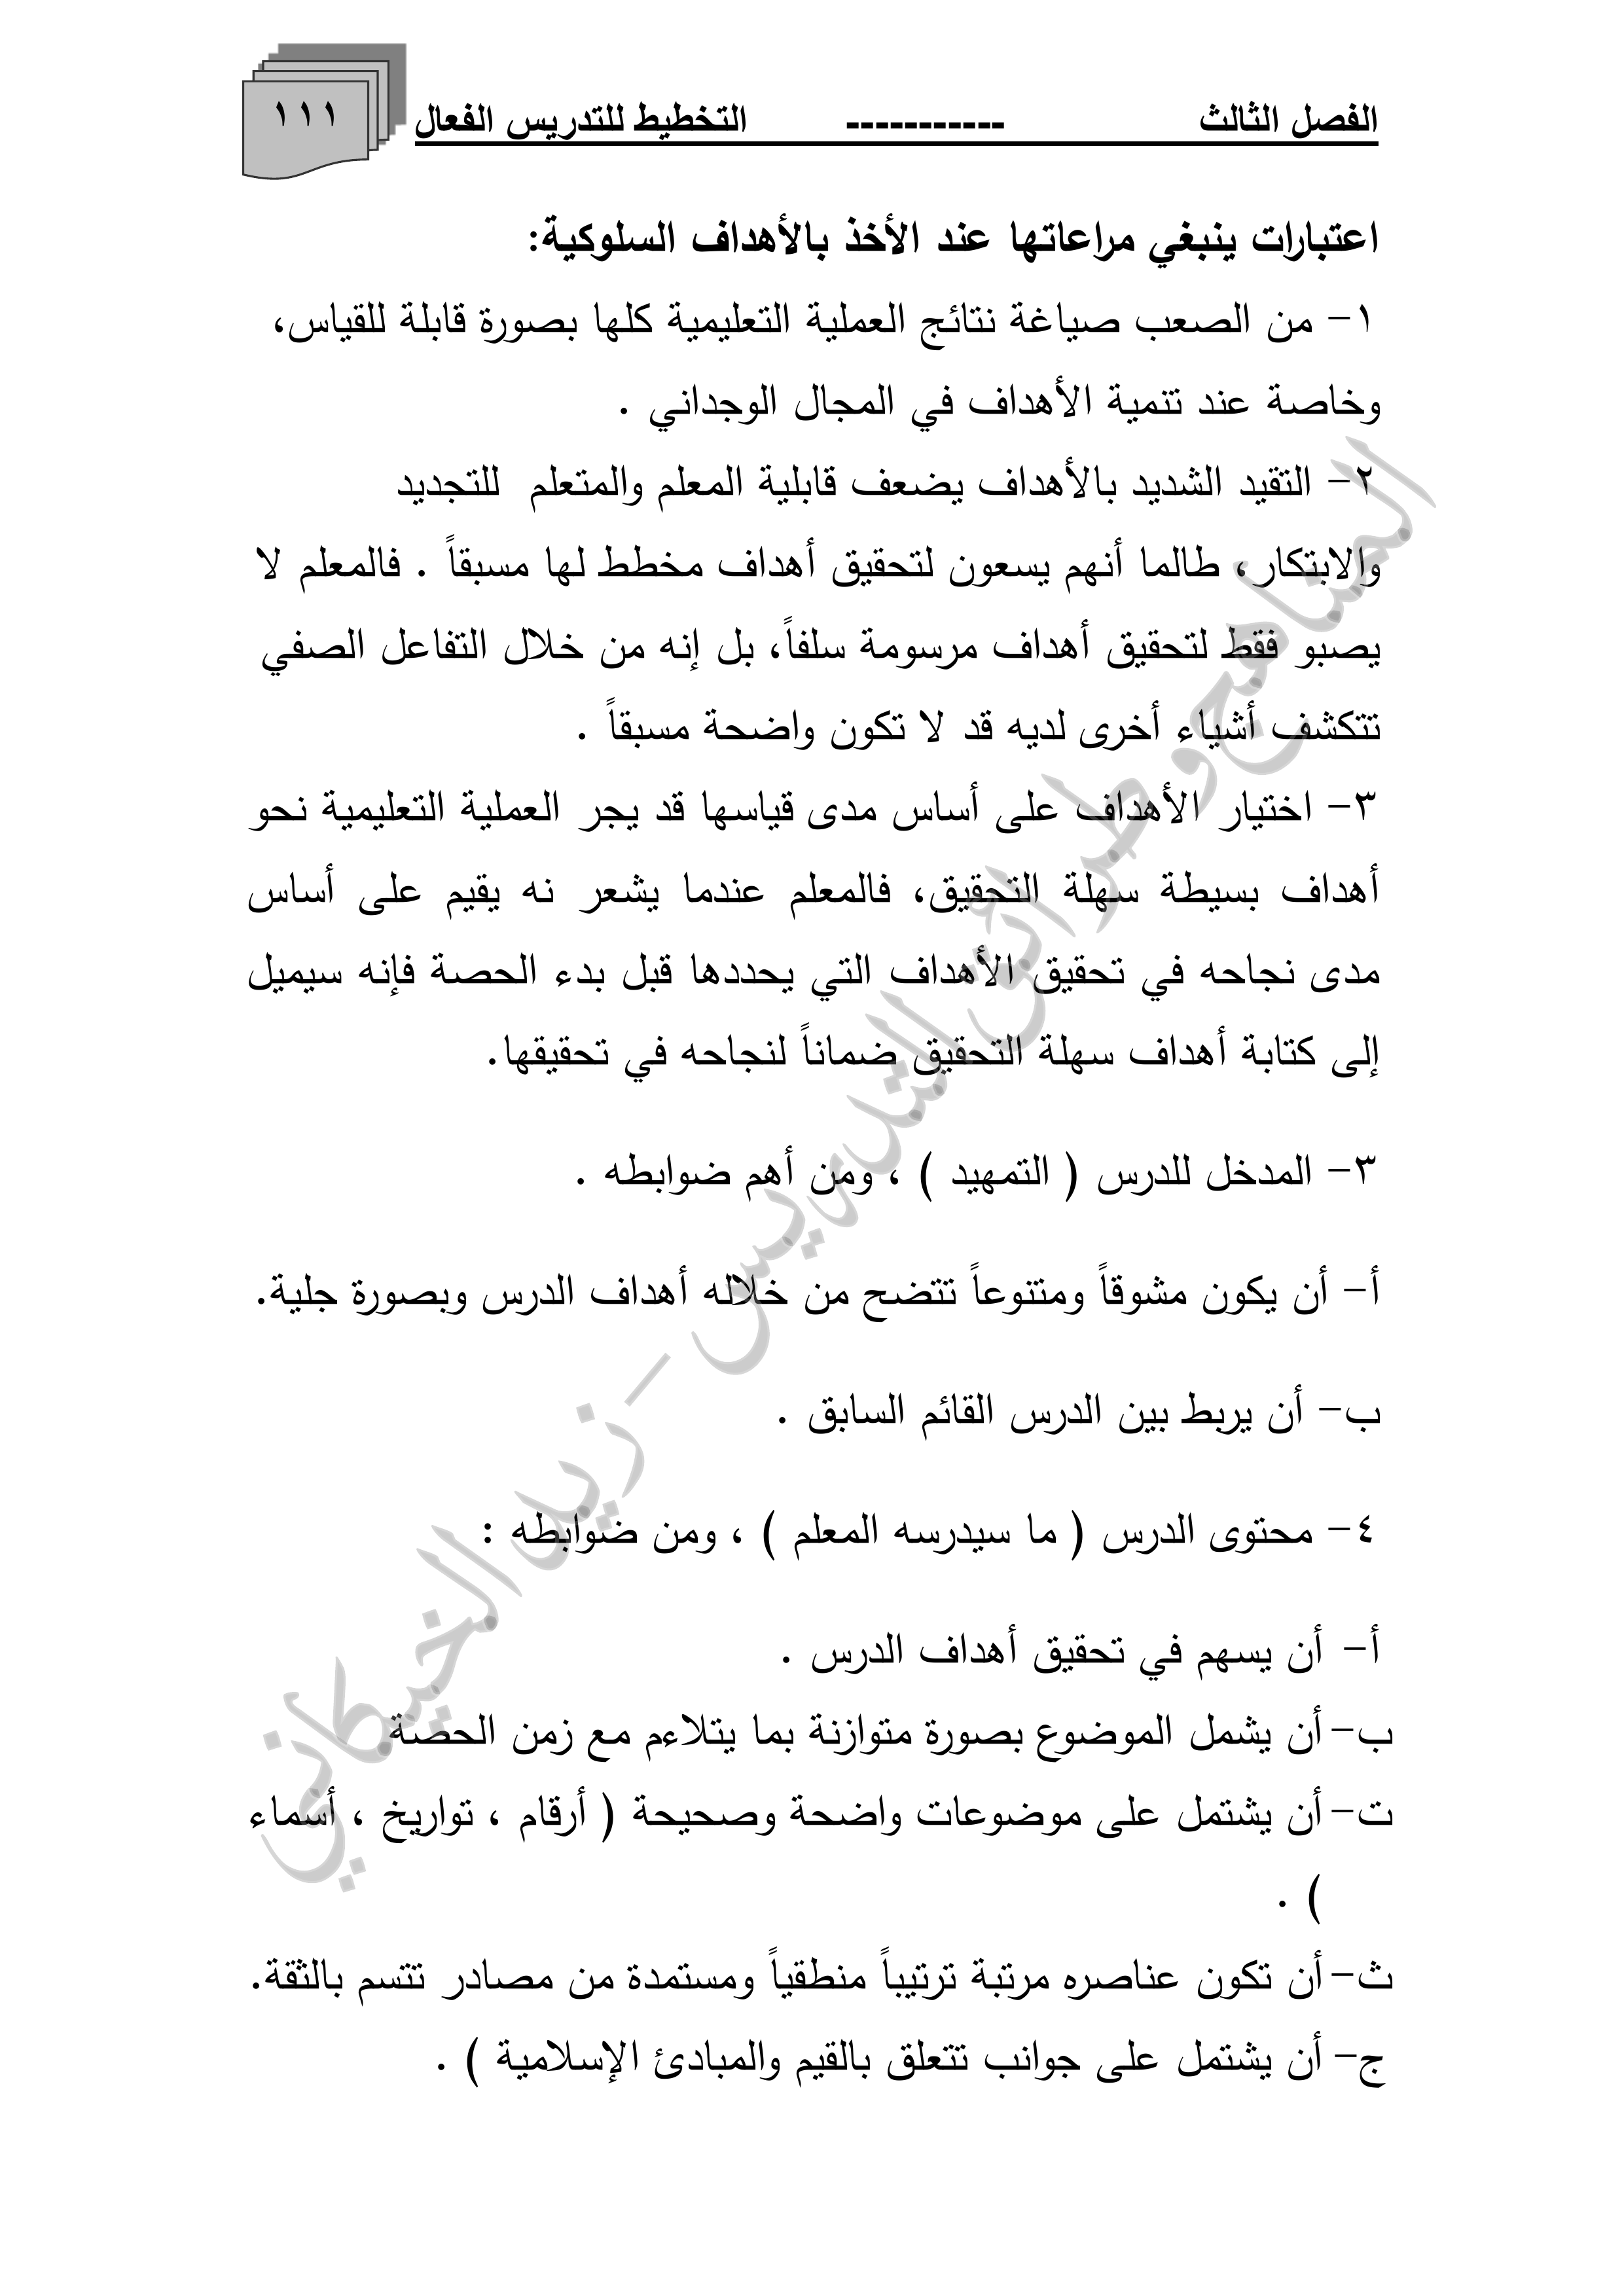 الفصل الثالث ----------- التخطيط للتدريس الفعال ١١١
اعتبارات ينبغي مراعاتها عند الأخذ بالأهداف السلوكية:
١- من الصعب صياغة نتائج العملية التعليمية كلها بصورة قابلة للقياس،
وخاصة عند تنمية الأهداف في المجال الوجداني .
٢- التقيد الشديد بالأهداف يضعف قابلية المعلم والمتعلم للتجديد
والابتكار، طالما أنهم يسعون لتحقيق أهداف مخطط لها مسبقاً . فالمعلم لا
يصبو فقط لتحقيق أهداف مرسومة سلفاً، بل إنه من خلال التفاعل الصفي
تتكشف أشياء أخرى لديه قد لا تكون واضحة مسبقاً .
٣- اختيار الأهداف على أساس مدى قياسها قد يجر العملية التعليمية نحو
أهداف بسيطة سهلة التحقيق، فالمعلم عندما يشعر نه يقيم على أساس
مدى نجاحه في تحقيق الأهداف التي يحددها قبل بدء الحصة فإنه سيميل
إلى كتابة أهداف سهلة التحقيق ضماناً لنجاحه في تحقيقها.
٣- المدخل للدرس ( التمهيد ) ، ومن أهم ضوابطه .
أ- أن يكون مشوقاً ومتنوعاً تتضح من خلاله أهداف الدرس وبصورة جلية.
ب- أن يربط بين الدرس القائم السابق .
٤- محتوى الدرس ( ما سيدرسه المعلم ) ، ومن ضوابطه :
أ- أن يسهم في تحقيق أهداف الدرس .
ب- أن يشمل الموضوع بصورة متوازنة بما يتلاءم مع زمن الحصة
ت- أن يشتمل على موضوعات واضحة وصحيحة ( أرقام ، تواريخ ، أسماء
) .
ث- أن تكون عناصره مرتبة ترتيباً منطقياً ومستمدة من مصادر تتسم بالثقة.
ج- أن يشتمل على جوانب تتعلق بالقيم والمبادئ الإسلامية ) .
المناهج وطرائق التدريس - زيد الخيكاني